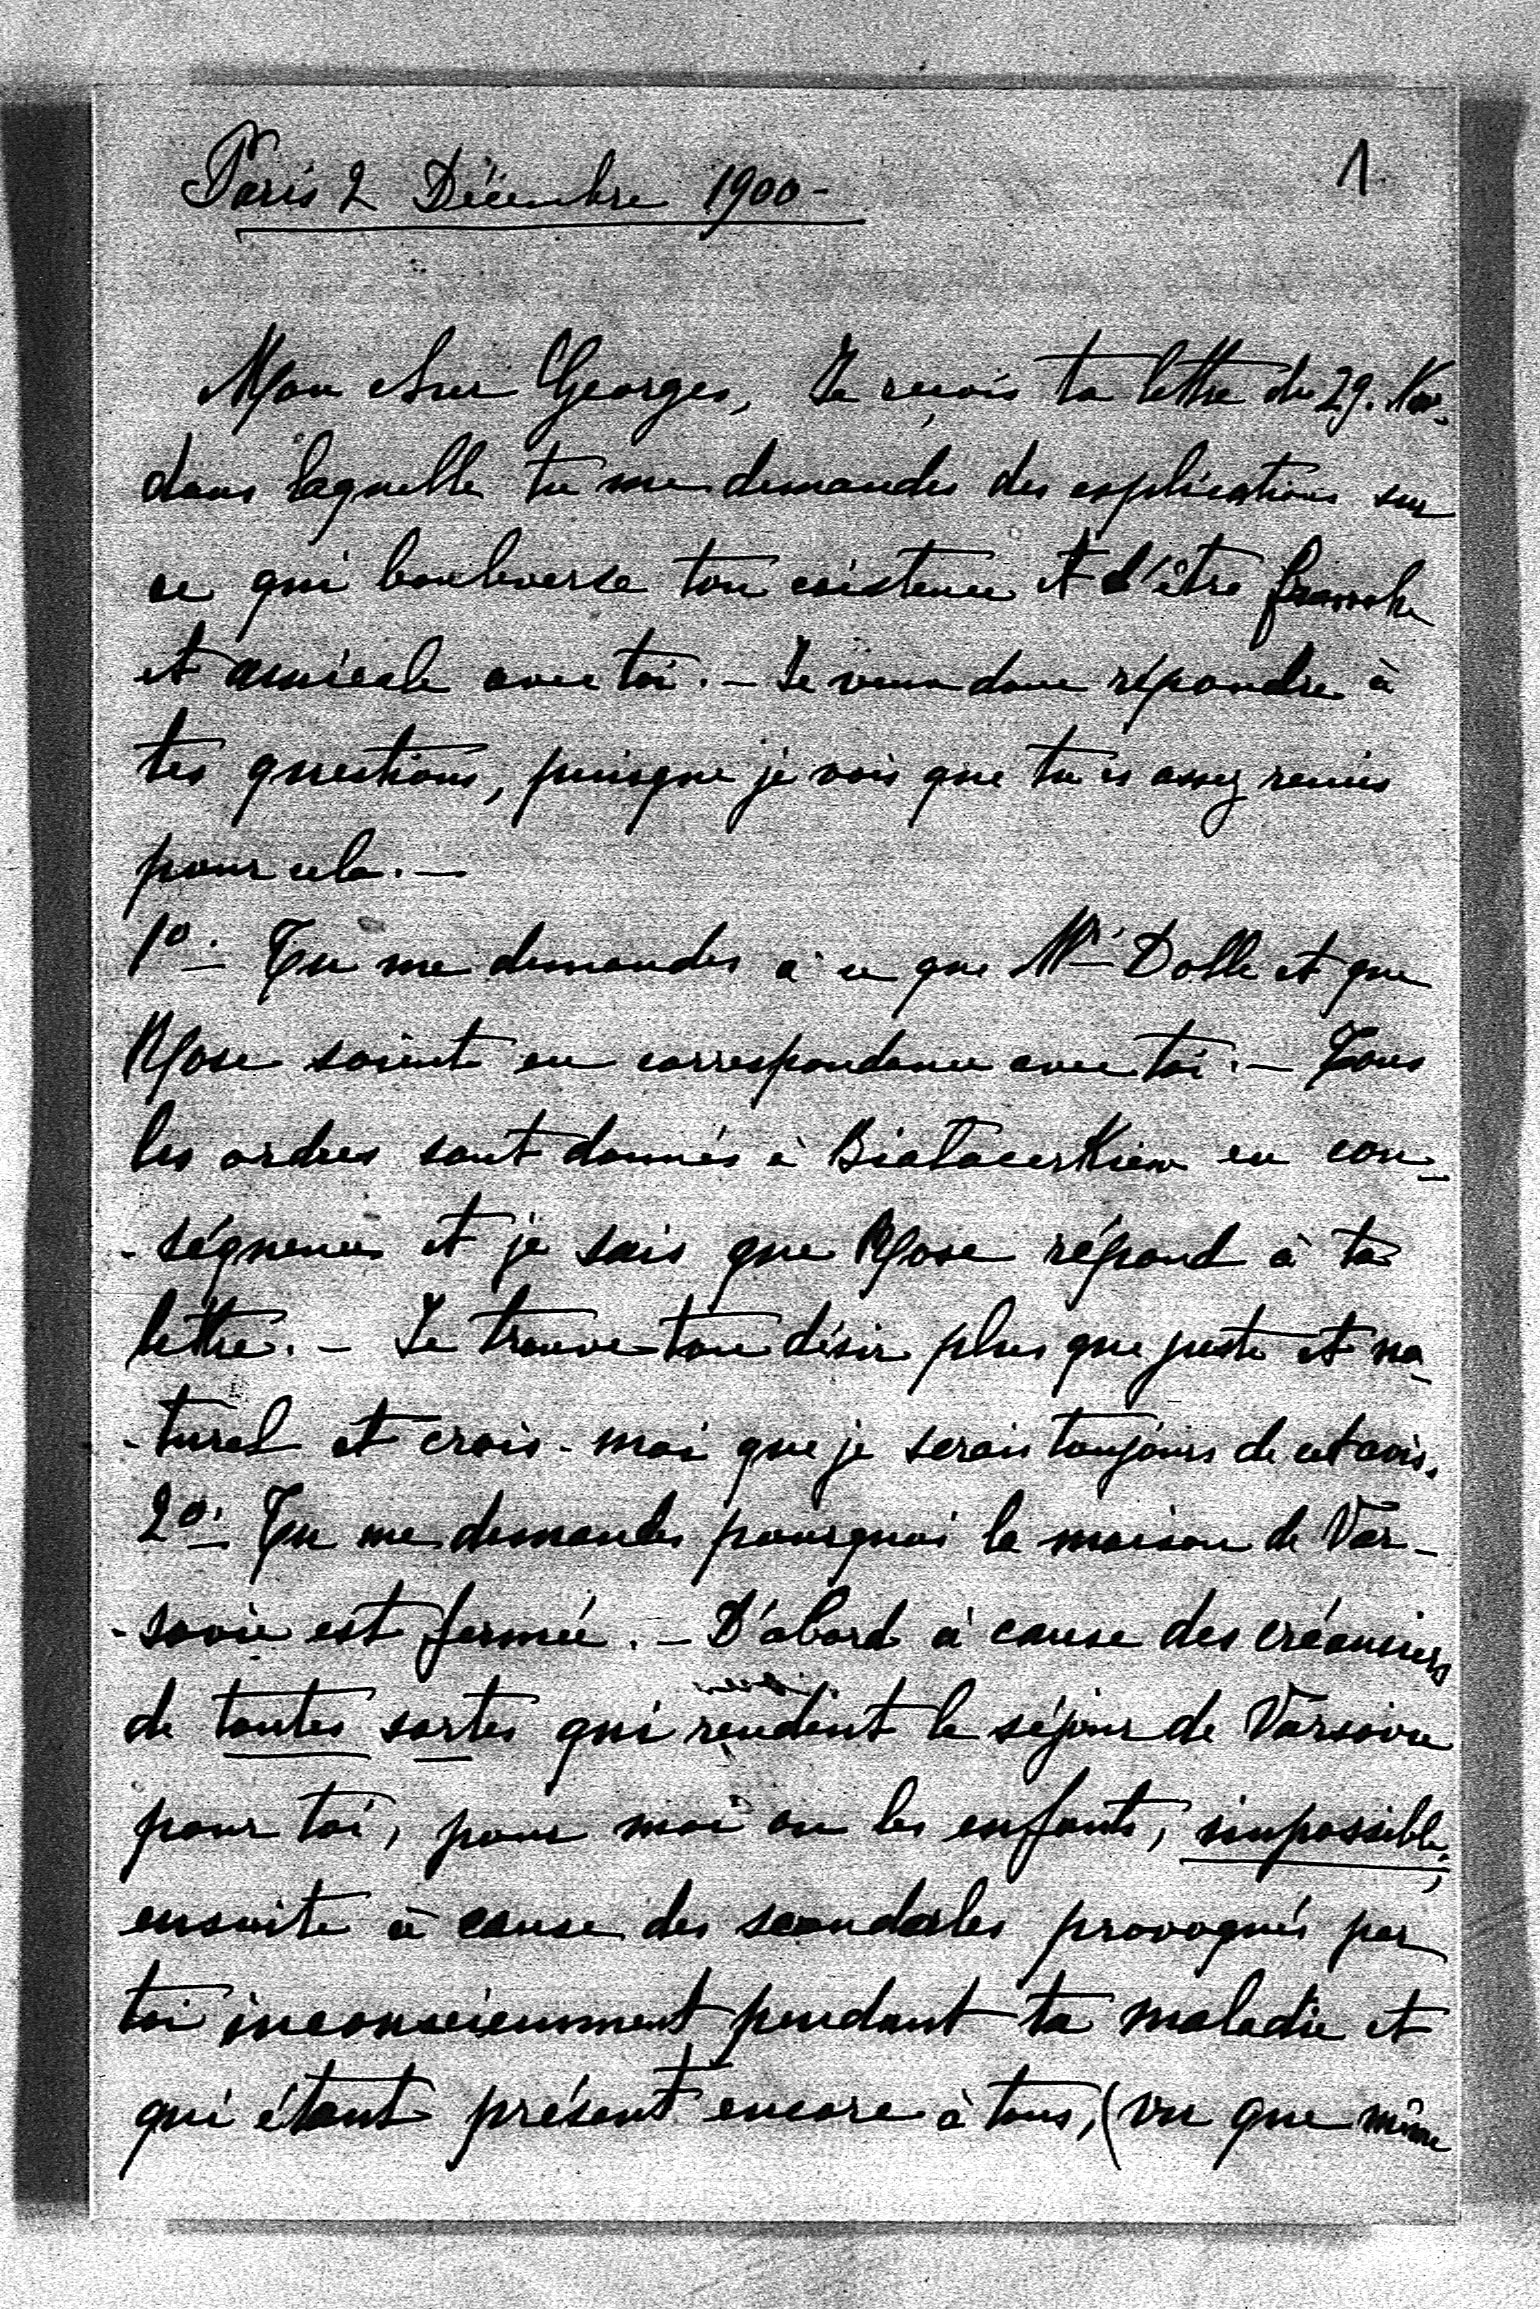 Paris 2 Décembre 1900 -
1
Mon cher Georges, Je reçois ta lettre du 29. Nov.
dans laquelle tu me demandes des explications sur
ce qui bouleverse ton existence et d'être franche
et amicale avec toi. - Je veux donc répondre à
tes questions, puisque je vois que tu es assez remis
pour cela. -
1º. Tu me demandes à ce que Mr Dolle et que
Rose soient en correspondance avec toi. - Tous
les ordres sont donnés à Biatacerkiew en con-
- séquence et je sais que Rose répond à ta
lettre. - Je trouve ton désir plus que juste et na-
- turel et crois-moi que je serais toujours de cet avis.
2º. Tu me demandes pourquoi la maison de Var-
- sovie est fermée. - D'abord à cause des créanciers
de toutes sortes qui rendent le séjour de Varsovie
pour toi, pour moi ou les enfants, impossible;
ensuite à cause des scandales provoqués par
toi inconsciemment pendant ta maladie et
qui étant présent encore à tous, (vu que même